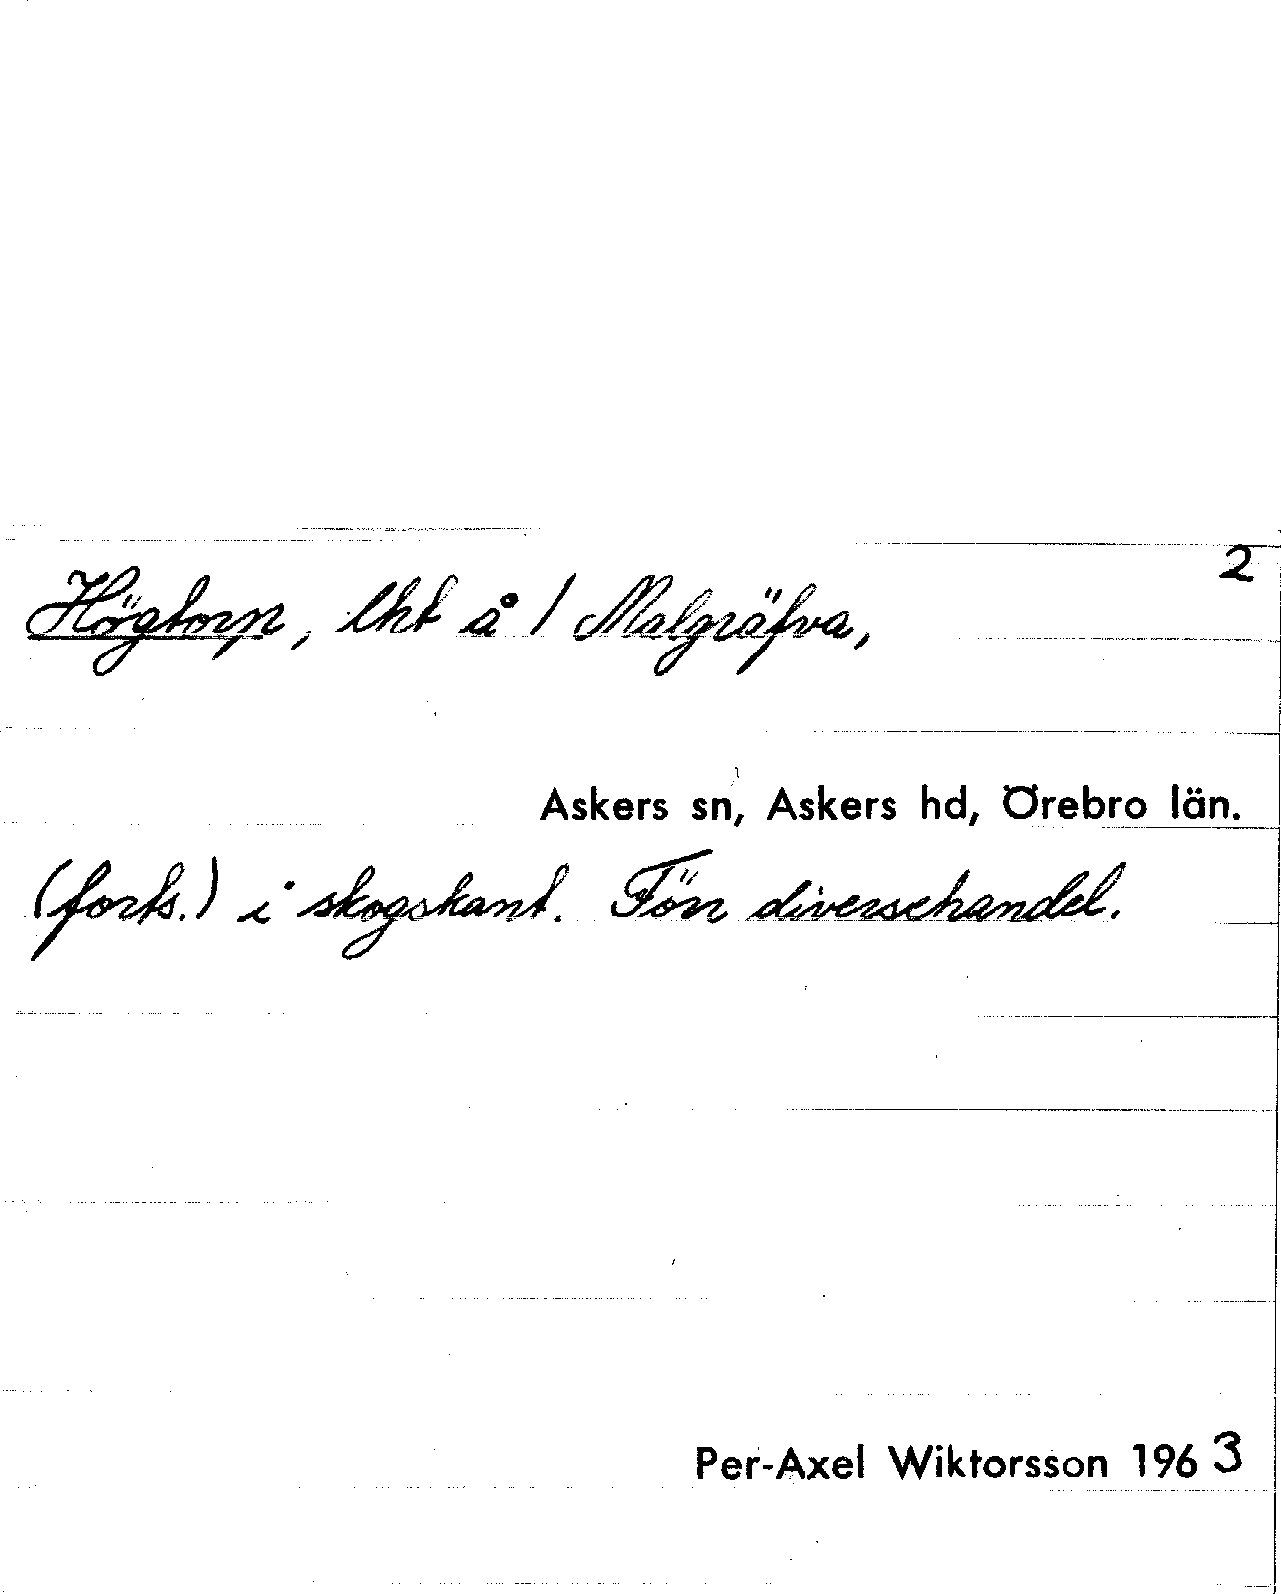 2
Högtorp, lht å 1 Malgräfva,
Askers sn, Askers hd, Örebro län.
(forts.) i skogskant. Förr diversehandel.
Per-Axel Wiktorsson 1963